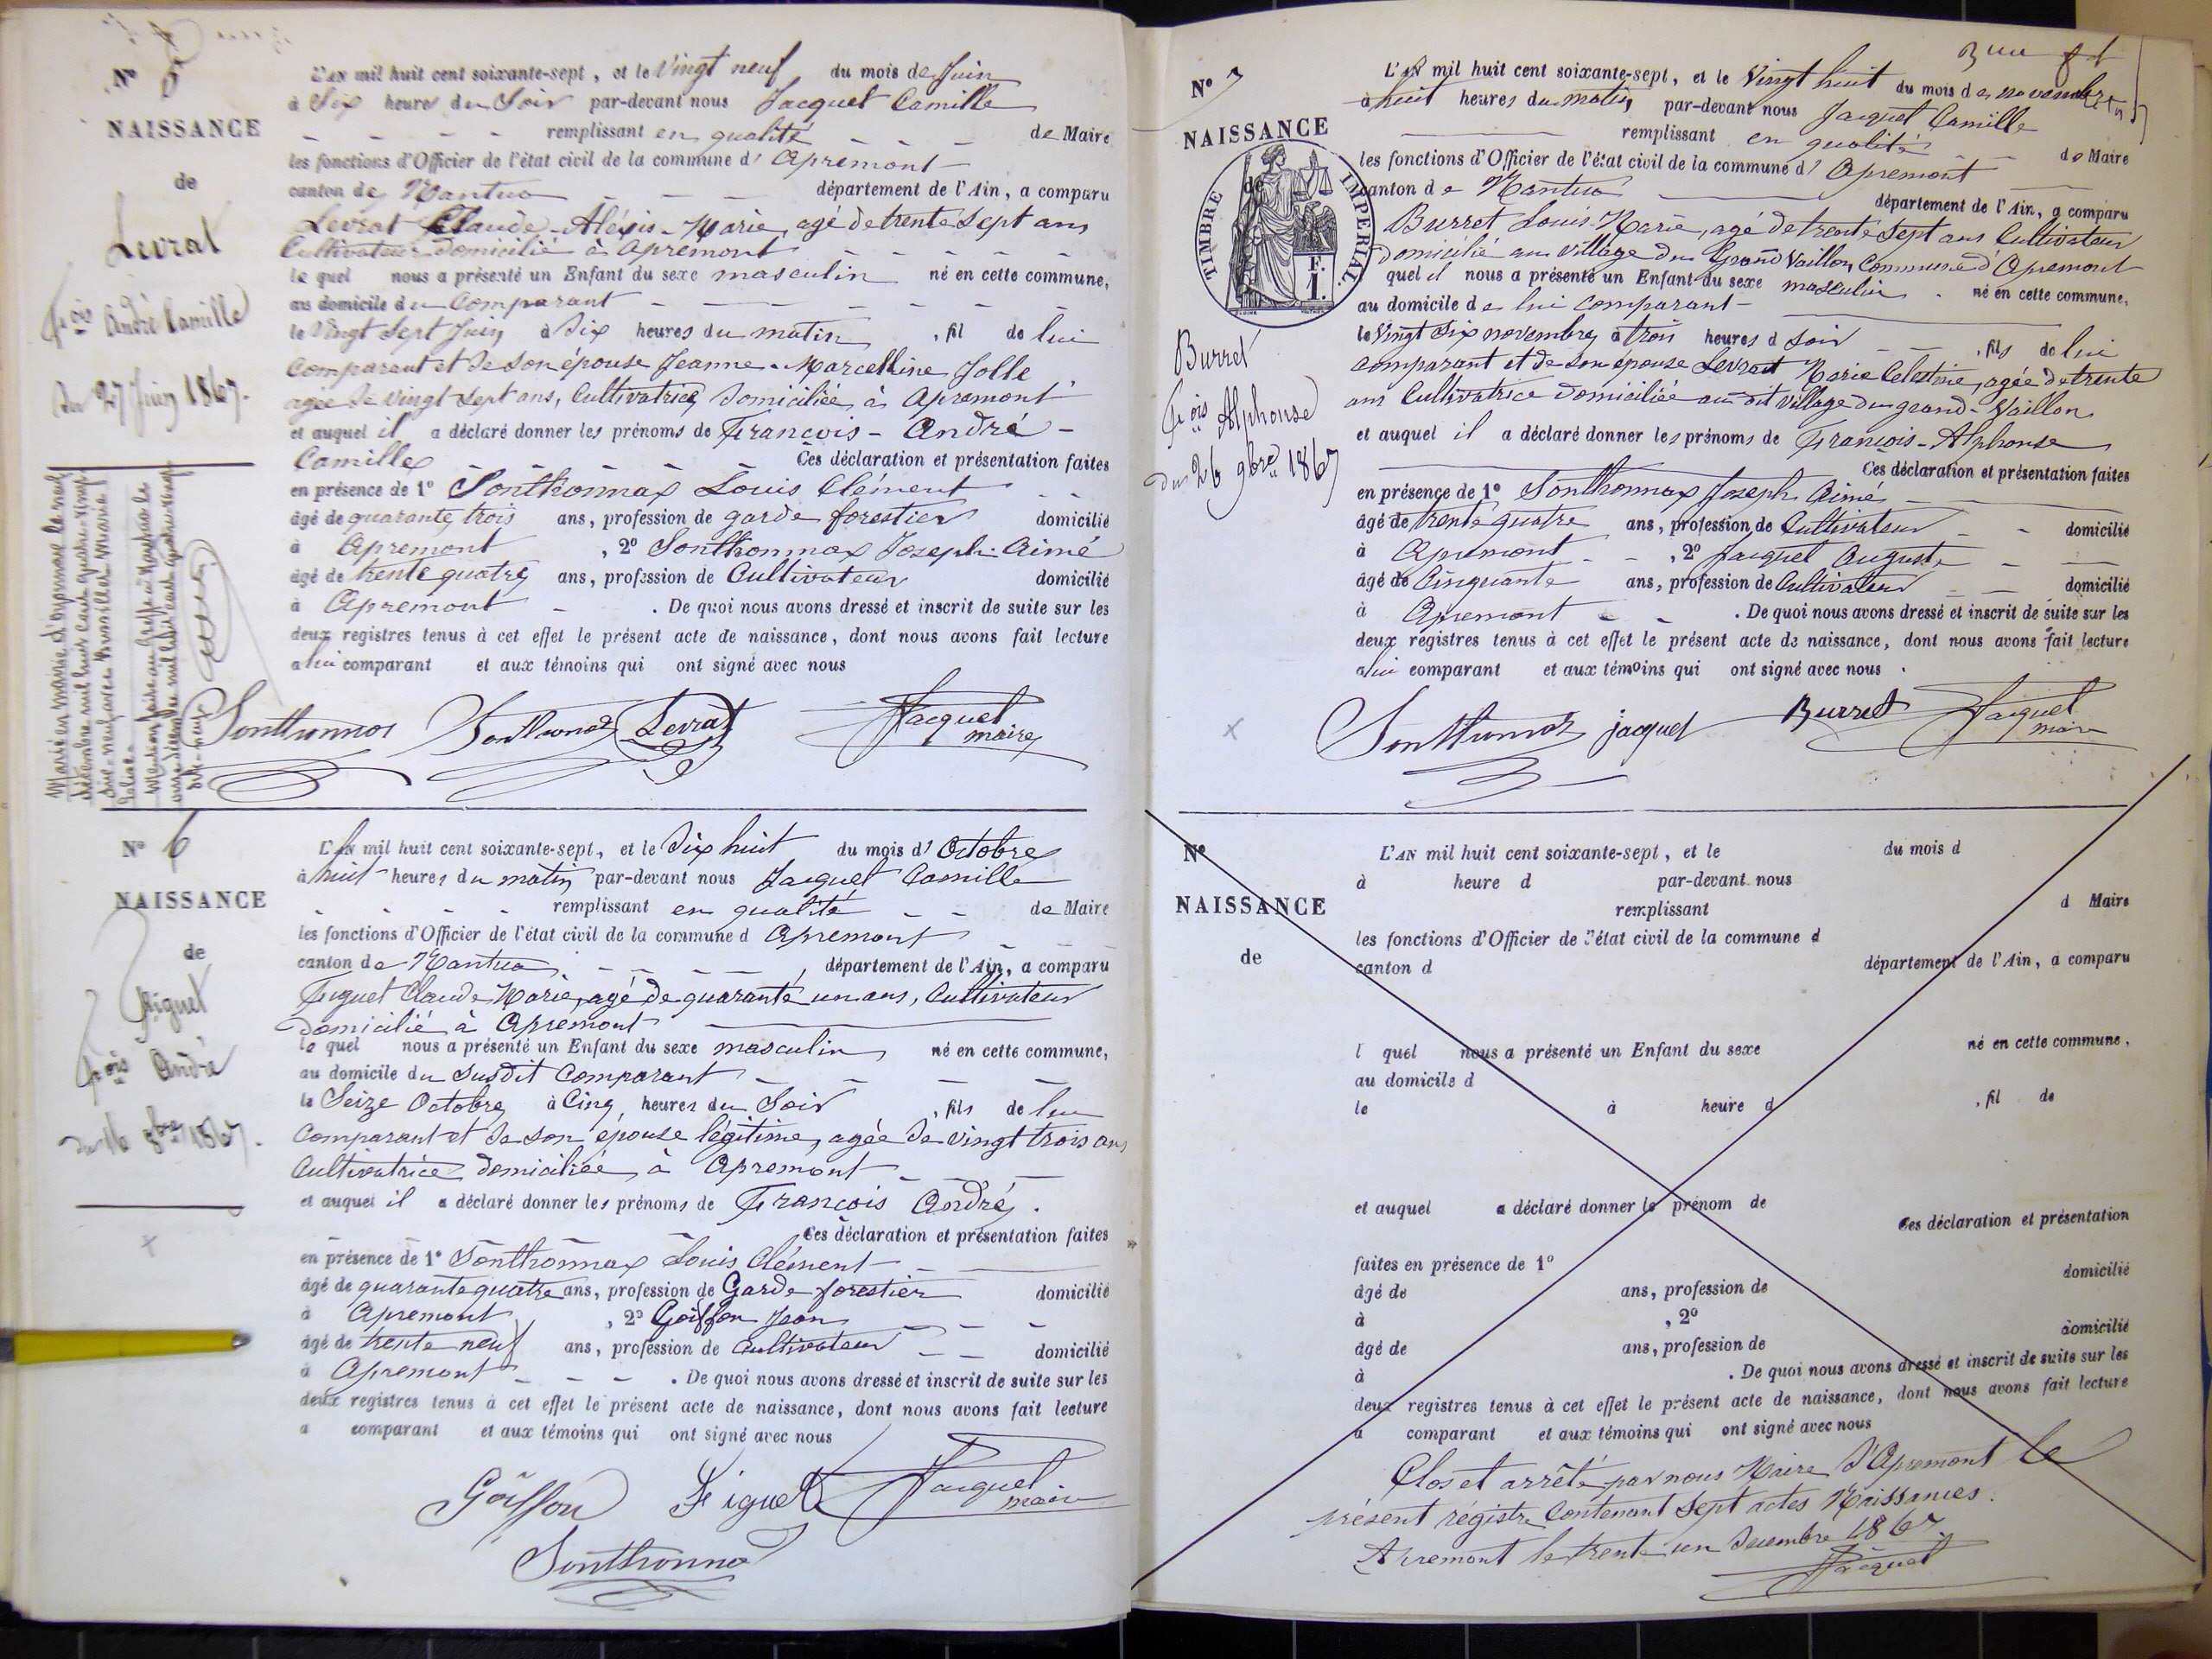 N° 5
NAISSANCE
de
Levrat
fçois André Camille
du 27 Juin 1867.
L'AN mil huit cent soixante-sept, et le Vingt neuf du mois de Juin
à Six heures du Soir par-devant nous Jacquet Camille
remplissant en qualité de Maire
les fonctions d'Officier de l'état civil de la commune d' Apremont
canton de Nantua département de l'Ain, a comparu
Levrat Claude-Aléxis-Marie, agé de trente sept ans
Cultivateur domicilié à Apremont
le quel nous a présenté un Enfant du sexe masculin né en cette commune,
au domicile du Comparant
le Vingt Sept Juin à Six heures du matin, fil de lui
Comparant et de son épouse Jeanne-Marcelline Jolle
agée de vingt sept ans, Cultivatrice, domiciliée à Apremont
et auquel il a déclaré donner les prénoms de François-André-
Camille Ces déclaration et présentation faites
en présence de 1° Sonthonnax Louis Clément
âgé de quarante trois ans, profession de garde forestier domicilié
à Apremont, 2° Sonthonnax Joseph-Aimé
âgé de trente quatre ans, profession de Cultivateur domicilié
à Apremont. De quoi nous avons dressé et inscrit de suite sur les
deux registres tenus à cet effet le présent acte de naissance, dont nous avons fait lecture
a lui comparant et aux témoins qui ont signé avec nous
Sonthonnax Sonthonax Levrat Jacquet
maire
N° 6
NAISSANCE
de
Figuet
fçois André
du 16 8bre 1867.
L'AN mil huit cent soixante-sept, et le Dix huit du mois d' Octobre
à huit heures du matin par-devant nous Jacquet Camille
remplissant en qualité de Maire
les fonctions d'Officier de l'état civil de la commune d Apremont
canton de Nantua, département de l'Ain, a comparu
Figuet Claude Marie, agé de quarante un ans, Cultivateur
domicilié à Apremont
le quel nous a présenté un Enfant du sexe masculin né en cette commune,
au domicile du susdit Comparant
le Seize Octobre à Cinq heures du Soir, fils de lui
Comparant et de son épouse légitime, agée de vingt trois ans
Cultivatrice domiciliée à Apremont
et auquel il a déclaré donner les prénoms de François André.
Ces déclaration et présentation faites
en présence de 1° Sonthonnax Louis Clément
âgé de quarante quatre ans, profession de Garde forestier domicilié
à Apremont, 2° Goiffon Jean
âgé de trente neuf ans, profession de Cultivateur domicilié
à Apremont. De quoi nous avons dressé et inscrit de suite sur les
deux registres tenus à cet effet le présent acte de naissance, dont nous avons fait lecture
a comparant et aux témoins qui ont signé avec nous
Goiffon Figuet Jacquet
maire
Sonthonnax
N° 7
NAISSANCE
de
TIMBRE IMPERIAL
F.
1.
Burret
fçois Alphonse
du 26 9bre 1867
L'AN mil huit cent soixante-sept, et le Vingt huit du mois de novembre
à huit heures du matin, par-devant nous Jacquet Camille
remplissant en qualité de Maire
les fonctions d'Officier de l'état civil de la commune d' Apremont
canton de Nantua département de l'Ain, a comparu
Burret Louis-Marie, agé de trente sept ans Cultivateur
domicilié au village du Grand Vaillon Commune d'Apremont
quel il nous a présenté un Enfant du sexe masculin né en cette commune,
au domicile de lui comparant
le Vingt Six novembre, à trois heures d soir, fils de lui
comparant et de son épouse Levrat Marie Celestine, agée de trente
ans Cultivatrice domiciliée au dit village du grand-Vaillon
et auquel il a déclaré donner les prénoms de François-Alphonse
Ces déclaration et présentation faites
en présence de 1° Sonthonnax Joseph Aimé
âgé de trente quatre ans, profession de Cultivateur domicilié
à Apremont, 2° Jacquet Auguste
âgé de Cinquante ans, profession de Cultivateur domicilié
à Apremont. De quoi nous avons dressé et inscrit de suite sur les
deux registres tenus à cet effet le présent acte de naissance, dont nous avons fait lecture
a lui comparant et aux témoins qui ont signé avec nous.
Sonthonnax jacquet Burret Jacquet
maire
N°
NAISSANCE
de
L'AN mil huit cent soixante-sept, et le du mois d
à heure d par-devant nous
remplissant d Maire
les fonctions d'Officier de l'état civil de la commune d
canton d département de l'Ain, a comparu
l quel nous a présenté un Enfant du sexe né en cette commune,
au domicile d
le à heure d, fil de
et auquel a déclaré donner le prénom de
Ces déclaration et présentation
faites en présence de 1° domicilié
âgé de ans, profession de
à, 2° domicilié
âgé de ans, profession de
à. De quoi nous avons dressé et inscrit de suite sur les
deux registres tenus à cet effet le présent acte de naissance, dont nous avons fait lecture
a comparant et aux témoins qui ont signé avec nous
Clos et arrêté par nous Maire d'Apremont le
présent régistre Contenant Sept actes Naissances.
Apremont le trente un Decembre 1867.
Jacquet